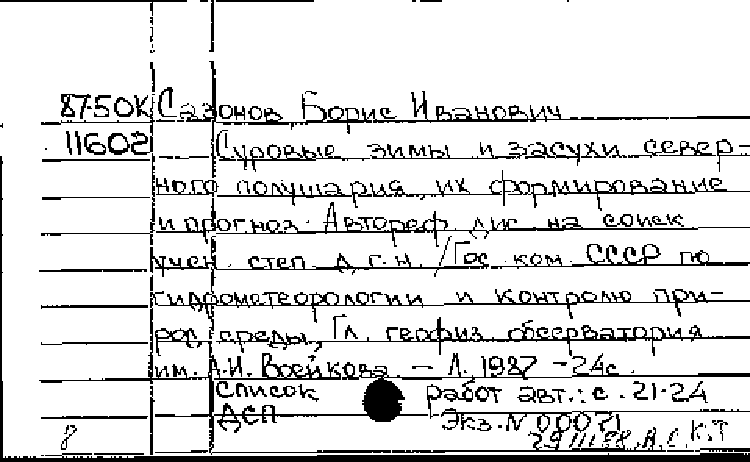 87-50К Сазонов Борис Иванович
11602 Суровые зимы и засухи север-
ного полушария, их формирование
и прогноз. Автореф. дис. на соиск
учен. степ. д.г.н. /Гос. ком. СССР по
гидрометеорологии и контролю при-
род. среды, Гл. геофиз. обсерватория
им. А.И. Воейкова. - Л., 1987 - 24с.
Список работ авт.: с. 21-24
ДСП Экз. N 00071
8 А.С. К.Т